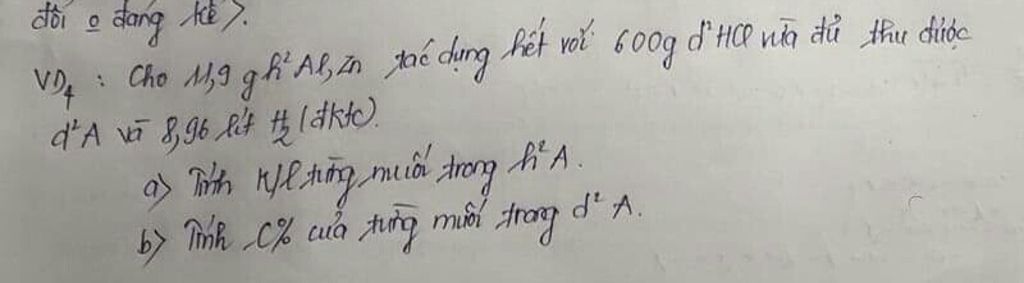 đổi o đáng kể >.
VD4 : Cho 11,9 g h² Al, Zn tác dụng hết với 600g d² HCl vừa đủ thu được
d² A và 8,96 lít H2 (đktc).
a> Tính K/l từng muối trong h² A.
b> Tính C% của từng muối trong d² A.